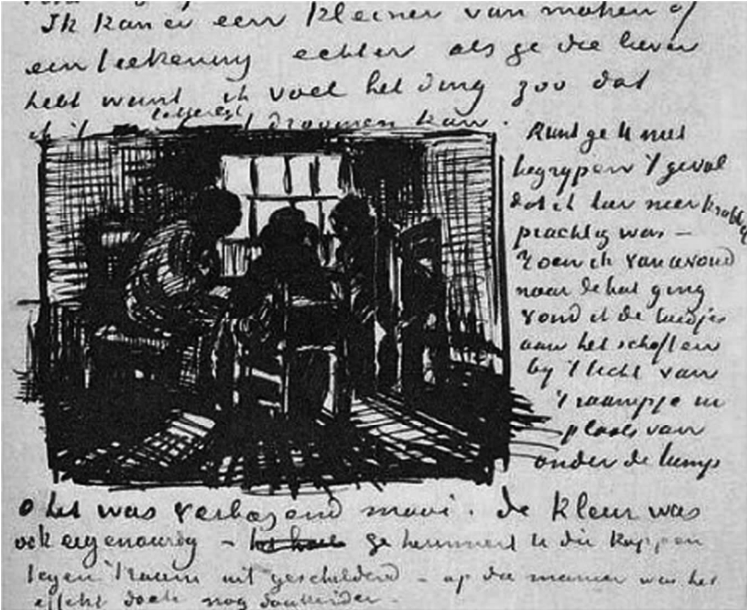 Ik kan er een kleiner van maken of
een teekening echter als ge die liever
hebt want ik voel het ding zoo dat
ik 't letterlijk droomen kan.
Kunt ge U niet
begrypen 't geval
dat ik hier neer krabbel
prachtig was –
Toen ik van avond
naar de hut ging
vond ik de luidjes
aan het schoften
by 't licht van
't raampje in
plaats van
onder de lamp
o het was verbazend mooi. De kleur was
ook eigenaardig – ge herinnert U die koppen
tegen 't raam uit geschilderd – op die manier was het
effekt doch nog donkerder –